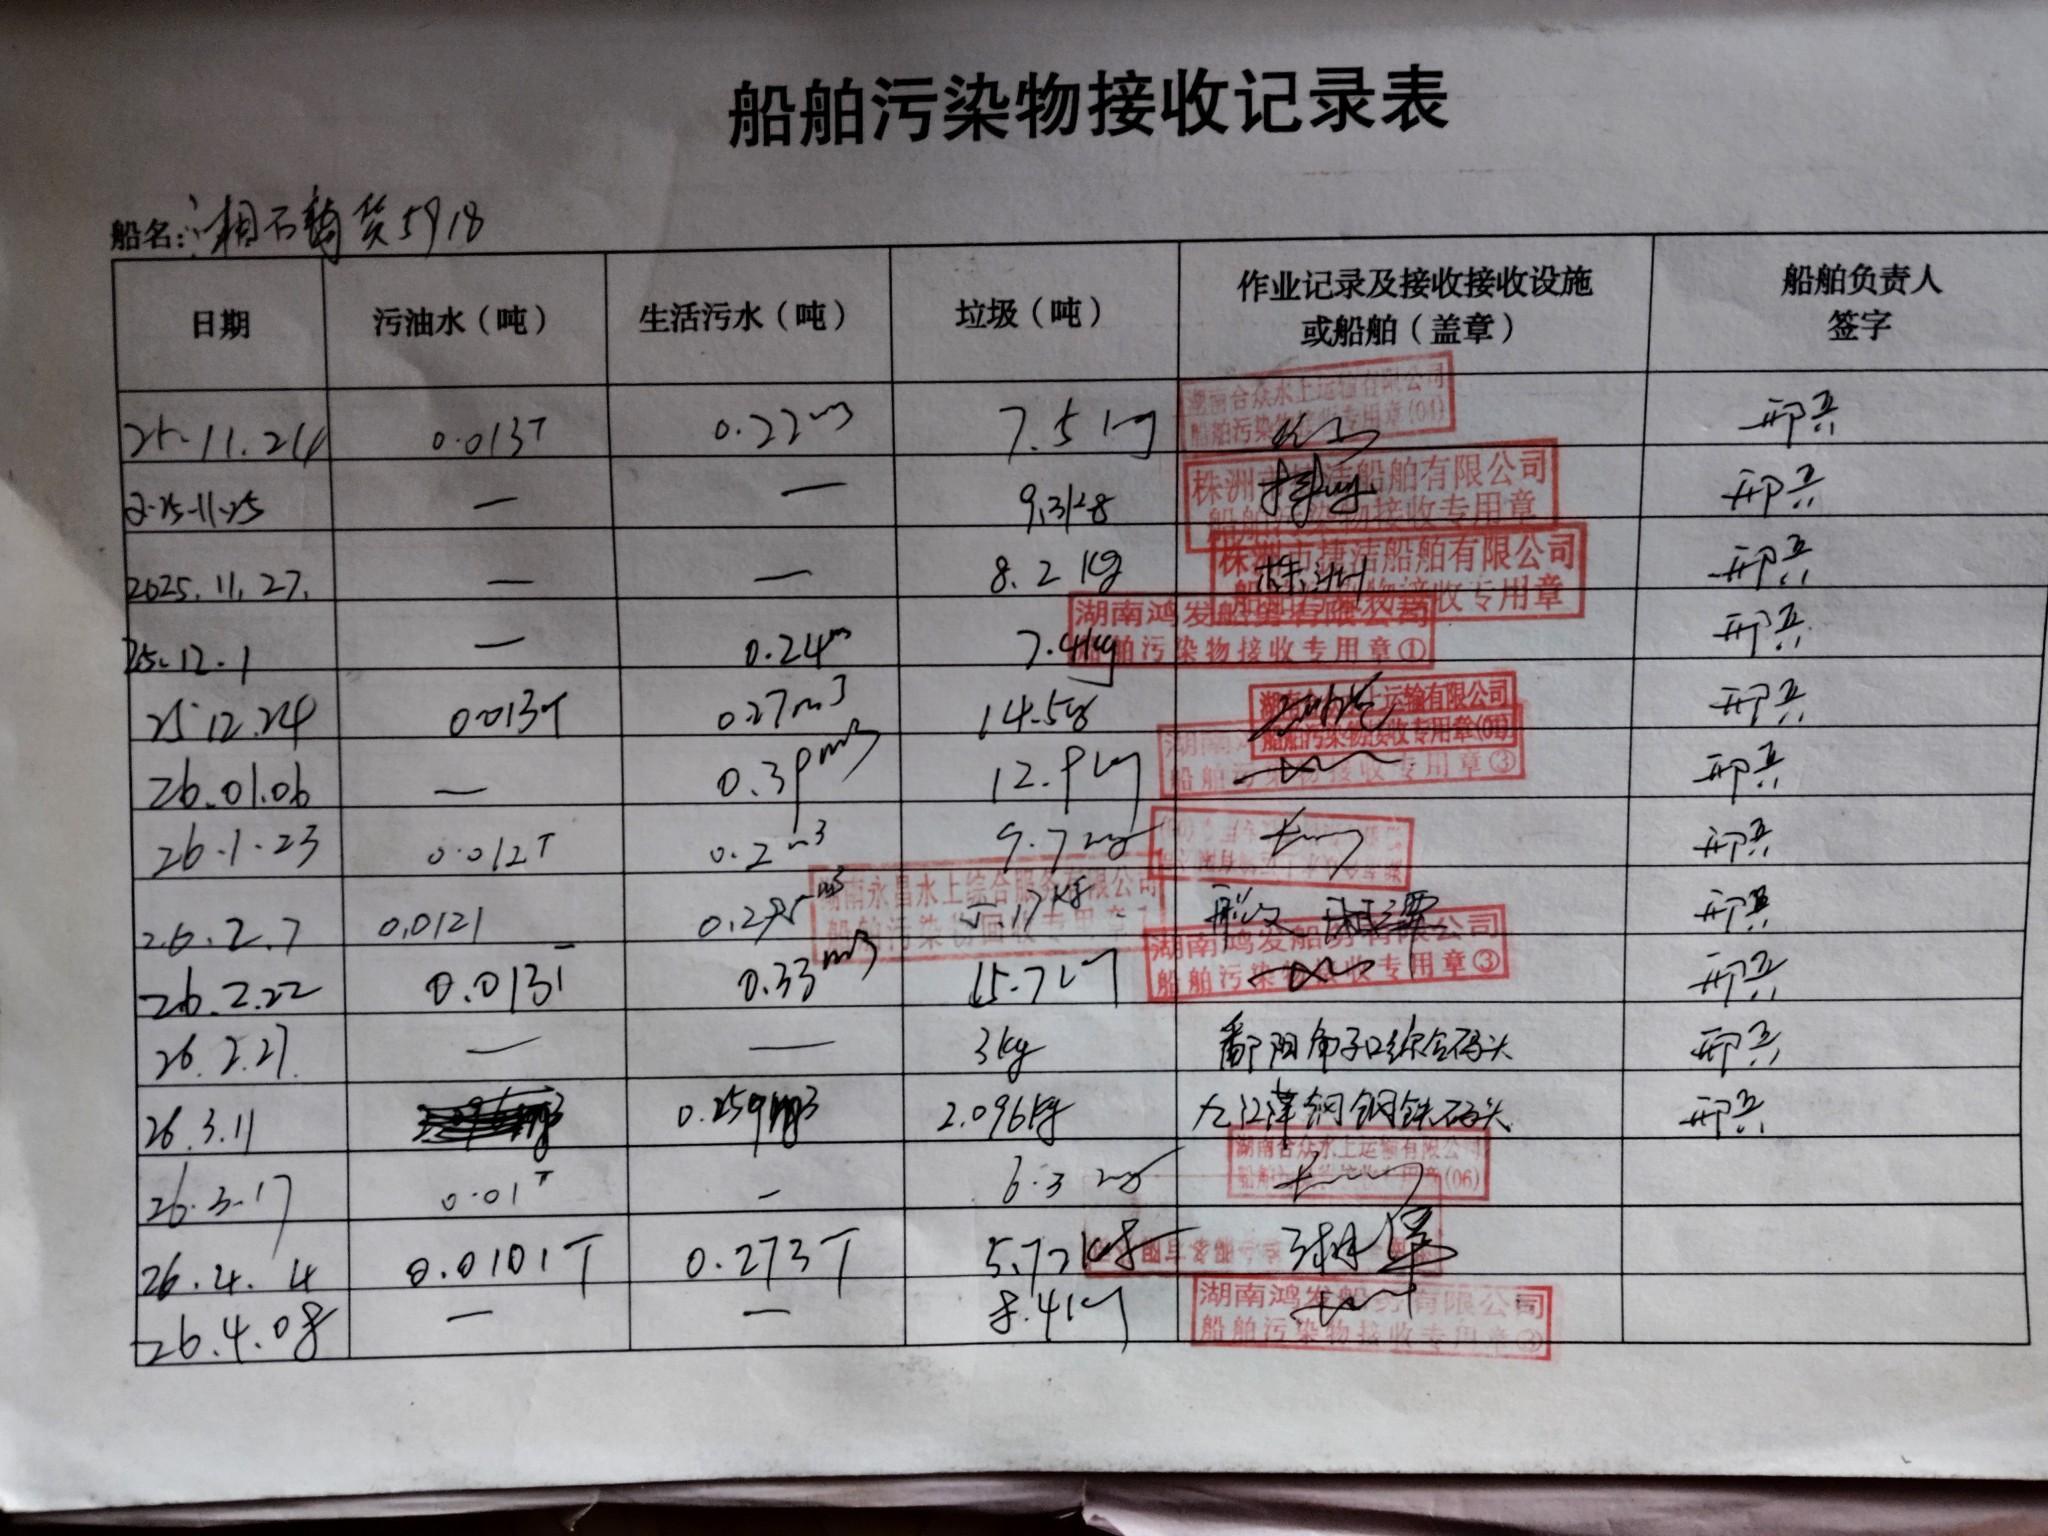 船舶污染物接收记录表
船名: 湘 货5918
日期 污油水（吨） 生活污水（吨） 垃圾（吨） 作业记录及接收接收设施或船舶（盖章） 船舶负责人签字
25.11.24 0.013T 0.22m3 7.5kg 湖南合众水上运输有限公司 船舶污染物接收专用章(04) 邢兵
— — 株洲市捷洁船舶有限公司 船舶污染物接收专用章 邢兵
2025.11.27. — — 8.2Kg 株洲市捷洁船舶有限公司 船舶污染物接收专用章 株洲 邢兵
25.12.1 — 0.24m 7.4kg 湖南鸿发船务有限公司 船舶污染物接收专用章① 邢兵
25.12.24 0.013T 0.27m3 14.5kg 水上运输有限公司 船舶污染物接收专用章 邢兵
26.01.06 — 0.39m3 12.9kg 船舶污染物接收专用章③ 邢兵
26.1.23 0.012T 0.2m3 9.7kg 邢兵
26.2.7 0.0121 0.295m3 湖南永昌水上综合服务有限公司 船舶污染物回收专用章 邢兵
26.2.22 0.013T 0.33m3 15.7kg 湖南鸿发船务有限公司 船舶污染物接收专用章③ 邢兵
26.2.27. — — 3kg 鄱阳 子口综合码头 邢兵
26.3.11 2.096kg 九江萍钢钢铁码头 邢兵
26.3.17 0.01T – 6.3kg 湖南合众水上运输有限公司 船舶污染物接收专用章(06)
26.4.4 0.0101T 0.273T 5.72kg
26.4.08 — — 8.4kg 湖南鸿发船务有限公司 船舶污染物接收专用章③